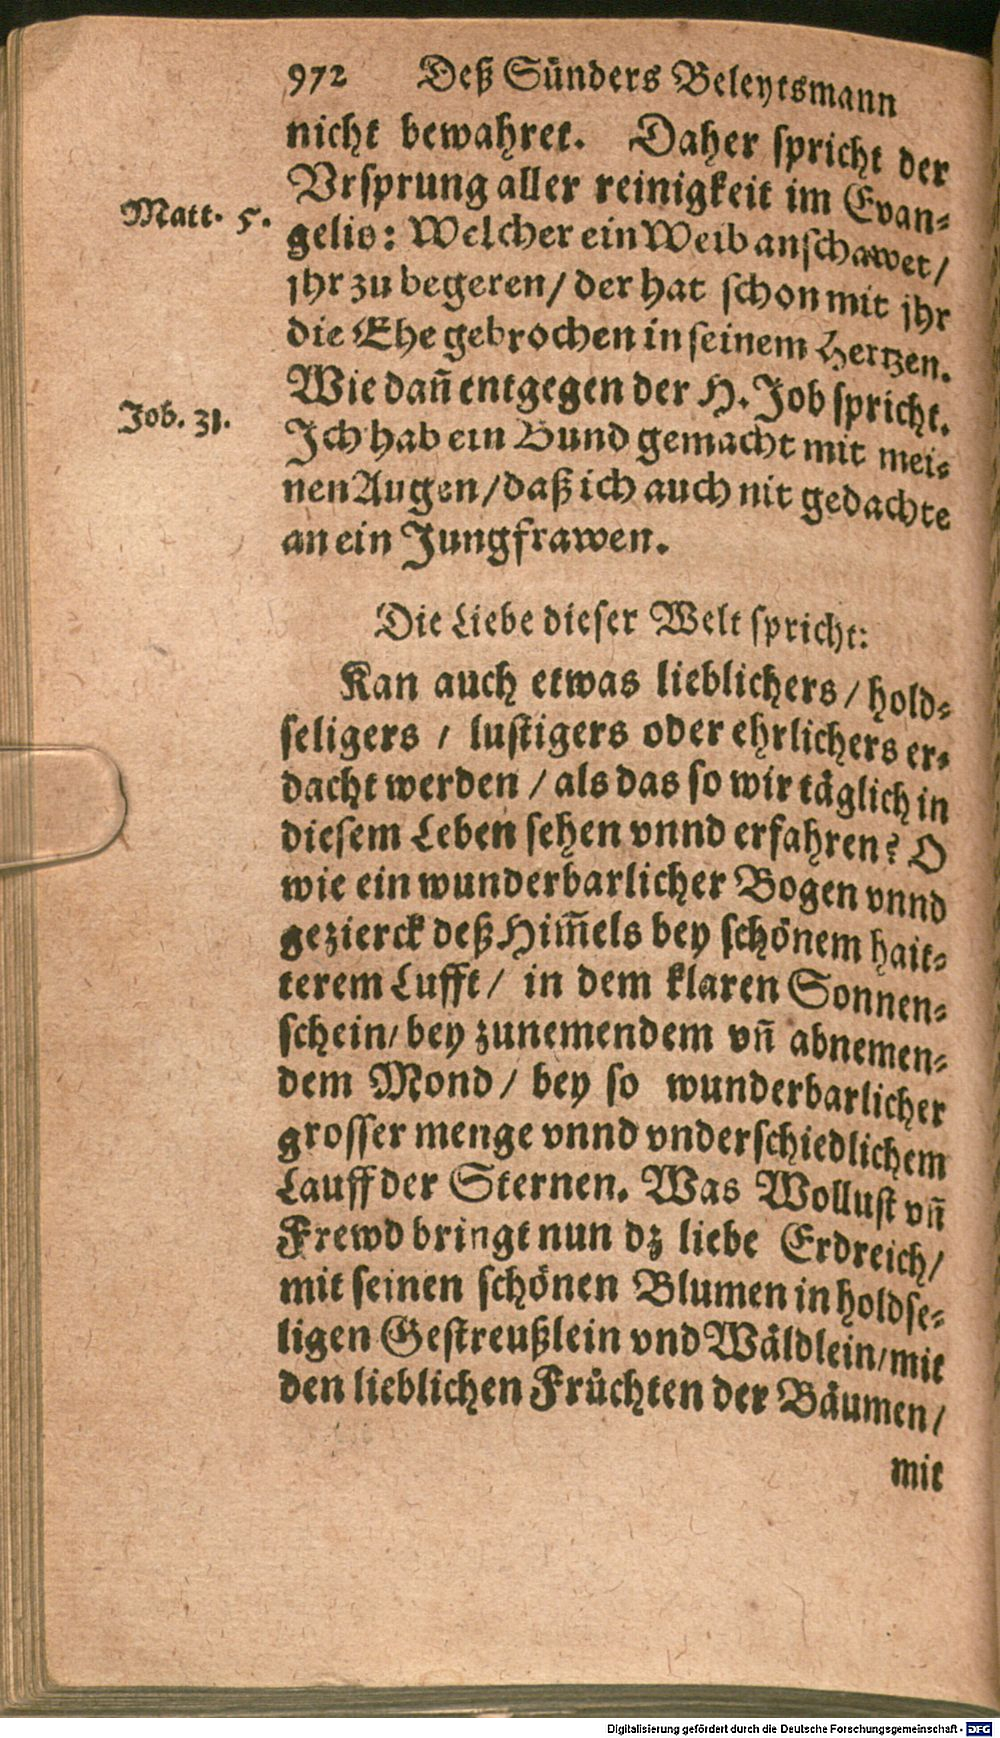 972 Deß Sünders Beleytsmann
nicht bewahret. Daher spricht der
Vrsprung aller reinigkeit im Evan-
Matt. 5.
gelio: Welcher ein Weib anschawet/
jhr zu begeren/ der hat schon mit jhr
die Ehe gebrochen in seinem Hertzen.
Wie dañ entgegen der H. Job spricht.
Job. 31.
Ich hab ein Bund gemacht mit mei-
nen Augen/ daß ich auch nit gedachte
an ein Jungfrawen.
Die Liebe dieser Welt spricht:
Kan auch etwas lieblichers/ hold-
seligers / lustigers oder ehrlichers er-
dacht werden / als das so wir täglich in
diesem Leben sehen vnnd erfahren? O
wie ein wunderbarlicher Bogen vnnd
gezierck deß Him̃els bey schönem hait-
terem Lufft/ in dem klaren Sonnen-
schein/ bey zunemendem vñ abnemen-
dem Mond/ bey so wunderbarlicher
grosser menge vnnd vnderschiedlichem
Lauff der Sternen. Was Wollust vñ
Frewd bringt nun dz liebe Erdreich/
mit seinen schönen Blumen in holdse-
ligen Gestreußlein vnd Wäldlein/ mit
den lieblichen Früchten der Bäumen/
mit
Digitalisierung gefördert durch die Deutsche Forschungsgemeinschaft - DFG